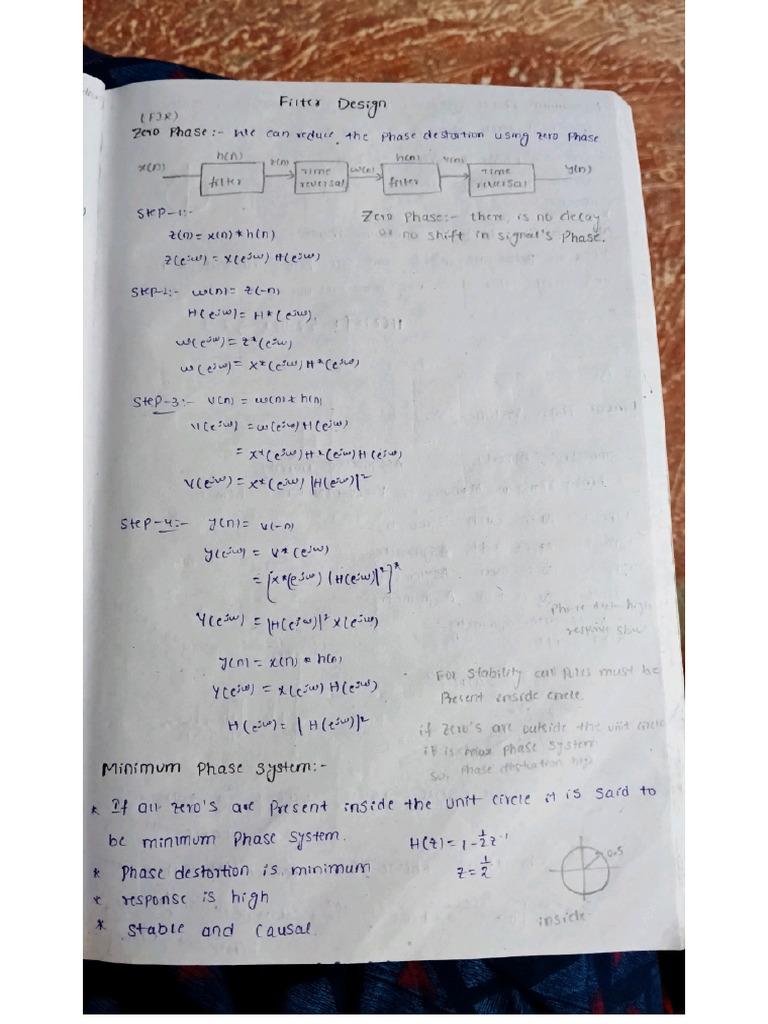 Filter Design
(FIR)
Zero Phase:- We can reduce the phase destortion using zero phase
h(n) z(n) w(n) h(n) v(n)
x(n) filter Time reversal filter Time reversal y(n)
Step-1:-
Zero Phase:- there is no decay
or no shift in signal's phase.
z(n) = x(n) * h(n)
Z(e^jω) = X(e^jω) H(e^jω)
Step-2:- w(n) = z(-n)
H(e^jω) = H*(e^jω).
W(e^jω) = Z*(e^jω)
W(e^jω) = X*(e^jω) H*(e^jω)
Step-3:- V(n) = w(n) * h(n)
V(e^jω) = W(e^jω) H(e^jω)
= X*(e^jω) H*(e^jω) H(e^jω)
V(e^jω) = X*(e^jω) |H(e^jω)|²
Step-4:- y(n) = v(-n)
Y(e^jω) = V*(e^jω)
= [X*(e^jω) |H(e^jω)|²]*
Y(e^jω) = |H(e^jω)|² X(e^jω)
y(n) = x(n) * h(n)
Y(e^jω) = X(e^jω) H(e^jω)
H(e^jω) = |H(e^jω)|²
high
response slow
For stability all poles must be
Present inside circle.
if zero's are outside the unit circle
it is max phase system
so, phase destruation high
Minimum Phase System:-
* If all zero's are present inside the unit circle it is said to
be minimum phase system.
H(z) = 1 - 1/2 z⁻¹
* Phase destortion is minimum
z = 1/2
0.5
* response is high
inside
* Stable and Causal